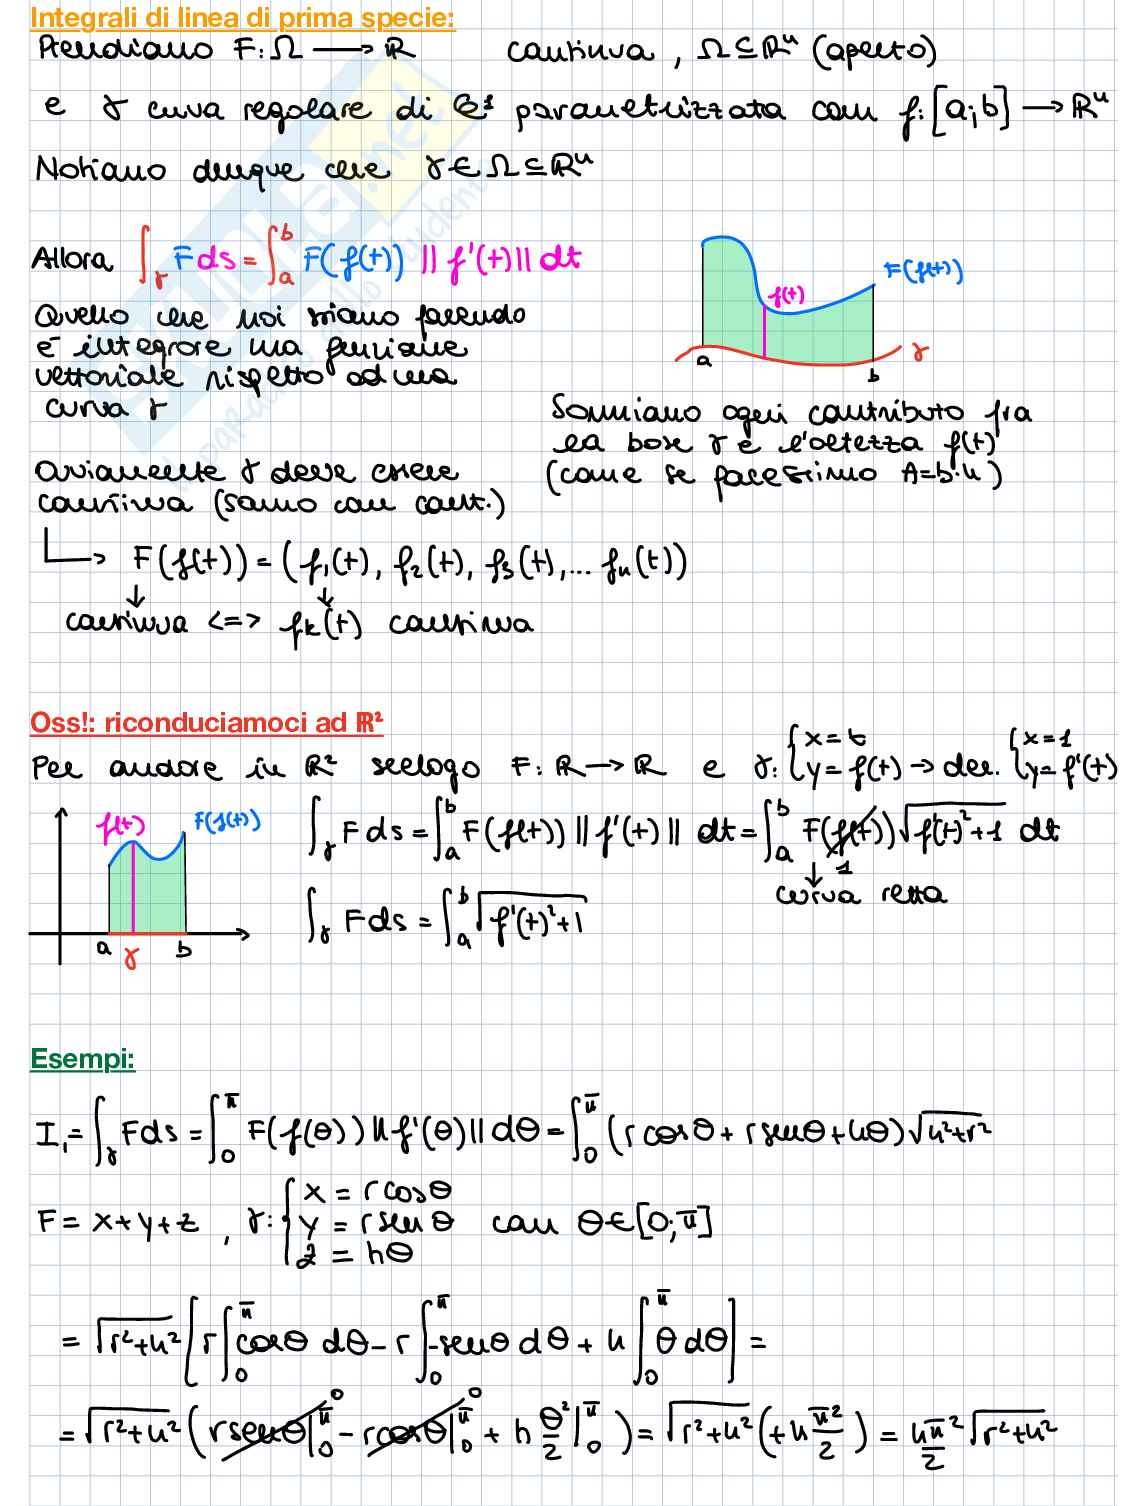 Integrali di linea di prima specie:
Prendiamo F: Ω → ℝ continua, Ω ⊆ ℝⁿ (aperto)
e γ curva regolare di C¹ parametrizzata con f: [a;b] → ℝⁿ
Notiamo dunque che γ ∈ Ω ⊆ ℝⁿ
Allora ∫_γ F ds = ∫_a^b F(f(t)) ||f'(t)|| dt
F(f(t))
f(t)
γ
a
b
Quello che noi stiamo facendo
è integrare una funzione
vettoriale rispetto ad una
curva γ
Sommiamo ogni contributo fra
la base γ e l'altezza f(t)
(come se facessimo A=b·h)
Ovviamente γ deve essere
continua (siamo con cont.)
→ F(f(t)) = (f₁(t), f₂(t), f₃(t),... fₙ(t))
↓ ↓
continua <=> fₖ(t) continua
Oss!: riconduciamoci ad ℝ²
Per andare in ℝ² scelgo F: ℝ → ℝ e γ: { x = t y = f(t) → der. { x = 1 y = f'(t)
f(t) F(f(t))
a γ b
∫_γ F ds = ∫_a^b F(f(t)) ||f'(t)|| dt = ∫_a^b F(f(t)) √(f'(t)²+1) dt
↓ 1
curva retta
∫_γ F ds = ∫_a^b √(f'(t)²+1)
Esempi:
I₁ = ∫_γ F ds = ∫_0^π F(f(θ)) ||f'(θ)|| dθ = ∫_0^π (r cosθ + r senθ + hθ) √(h²+r²)
F = x+y+z , γ: { x = r cosθ y = r senθ z = hθ con θ ∈ [0;π]
= √(r²+h²) [ r ∫_0^π cosθ dθ - r ∫_0^π -senθ dθ + h ∫_0^π θ dθ ] =
= √(r²+h²) ( r senθ |_0^π 0 - r cosθ |_0^π 0 + h θ²/2 |_0^π ) = √(r²+h²) (+h π²/2) = hπ²/2 √(r²+h²)